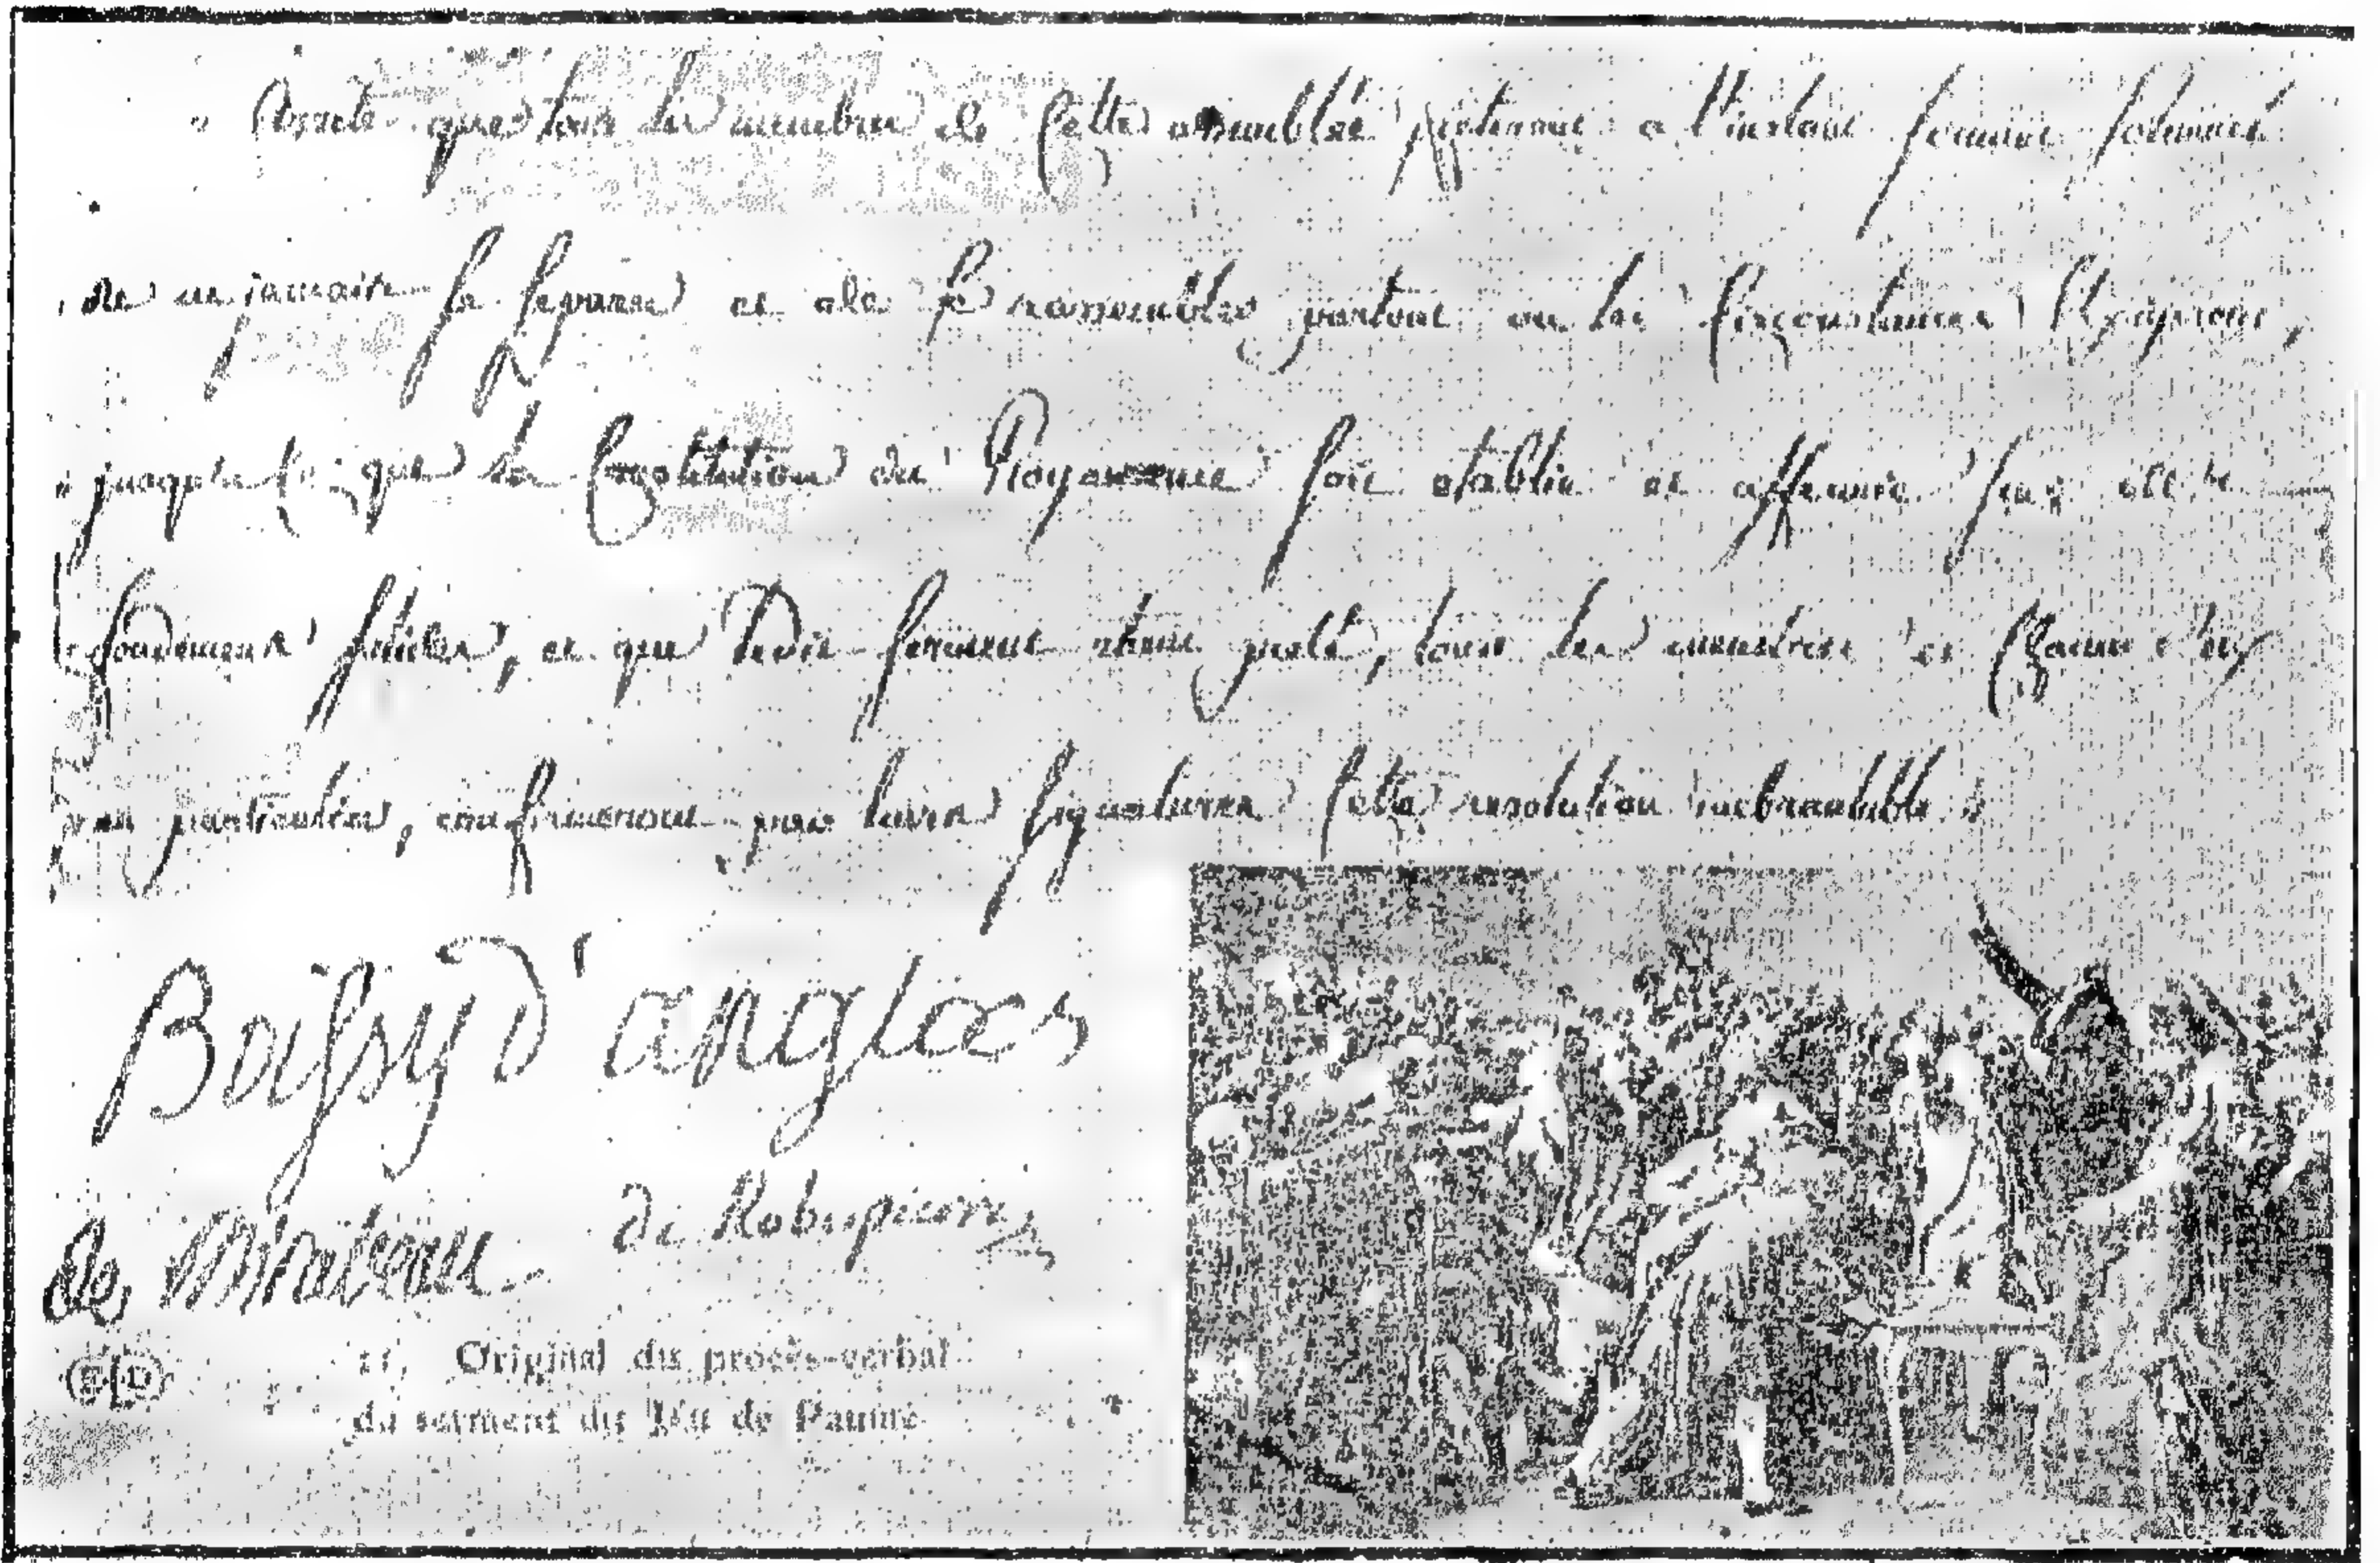 " Arrete que tous les membres de Cette assemblée preteront a l'instant serment solemnel
" de ne jamais se separer et de se rassembler partout ou les Circonstances l'Exigeront,
" jusqu'a Ce que la Constitution du Royaume soit etablie et affermie sur des
" fondemens solides, et que Ledit serment etant preté, tous les membres et Chacun d'eux
" en particulier, confirmeront par leurs signatures Cette resolution inebranlable "
Boissy d'anglas
de Mirabeau de Robespierre
Original du procès-verbal
du serment du Jeu de Paume